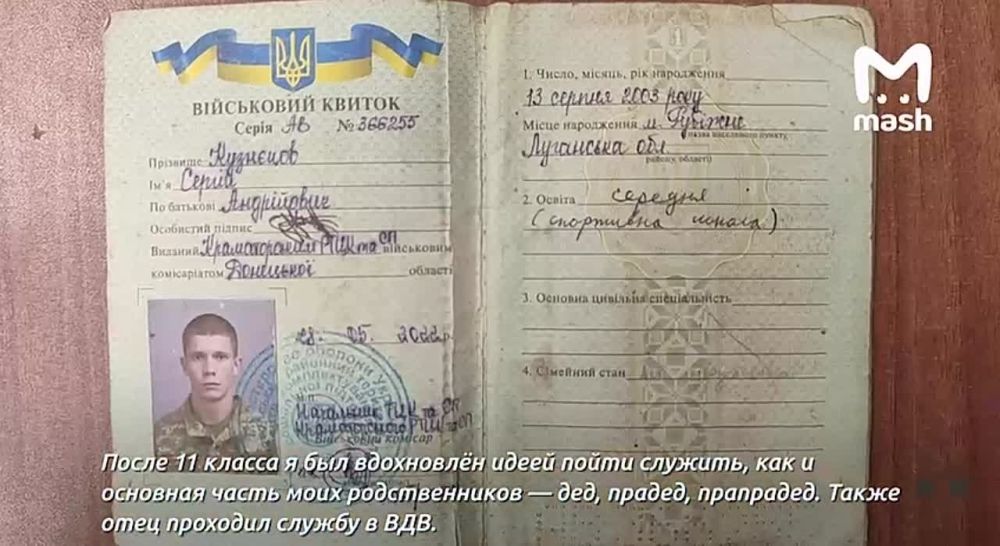 ВІЙСЬКОВИЙ КВИТОК
Серія АВ № 366255
Прізвище Кузнєцов
Ім'я Сергій
По батькові Андрійович
Особистий підпис
Виданий Краматорським РТЦК та СП військовим
комісаріатом Донецької області
28. 05. 2022р.
Начальник ТЦК та СП
Краматорського РТЦК та СП
Військовий комісар
1
1. Число, місяць, рік народження
13 серпня 2003 року
Місце народження м. Рубіжне
Луганська обл.
2. Освіта середня
(спортивна школа)
3. Основна цивільна спеціальність
4. Сімейний стан
mash
После 11 класса я был вдохновлён идеей пойти служить, как и
основная часть моих родственников — дед, прадед, прапрадед. Также
отец проходил службу в ВДВ.